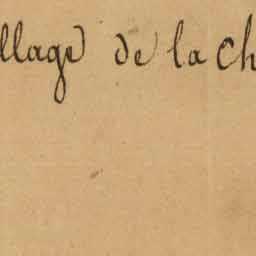 llage de la Ch